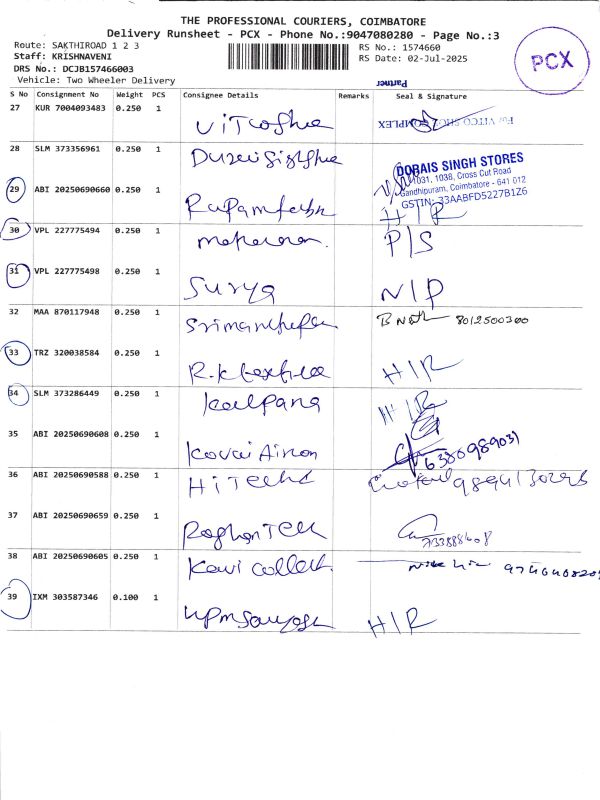 THE PROFESSIONAL COURIERS, COIMBATORE
Delivery Runsheet - PCX - Phone No.:9047080280 - Page No.:3
Route: SAKTHIROAD 1 2 3
Staff: KRISHNAVENI
DRS No.: DCJB157466003
Vehicle: Two Wheeler Delivery
RS No.: 1574660
RS Date: 02-Jul-2025
PCX
Partner
S No Consignment No Weight PCS Consignee Details Remarks Seal & Signature
27 KUR 7004093483 0.250 1
For VITCO SHOE COMPLEX
28 SLM 373356961 0.250 1
DORAIS SINGH STORES
1031, 1038, Cross Cut Road
Gandhipuram, Coimbatore - 641 012
GSTIN: 33AABFD5227B1Z6
29 ABI 20250690660 0.250 1 H/R
30 VPL 227775494 0.250 1 P/S
31 VPL 227775498 0.250 1 Surya N/P
32 MAA 870117948 0.250 1 8012500300
33 TRZ 320038584 0.250 1 H/R
34 SLM 373286449 0.250 1 Kalpana H/R
35 ABI 20250690608 0.250 1 Kovai 6380989031
36 ABI 20250690588 0.250 1 HiTech
37 ABI 20250690659 0.250 1
38 ABI 20250690605 0.250 1
39 IXM 303587346 0.100 1 H/R